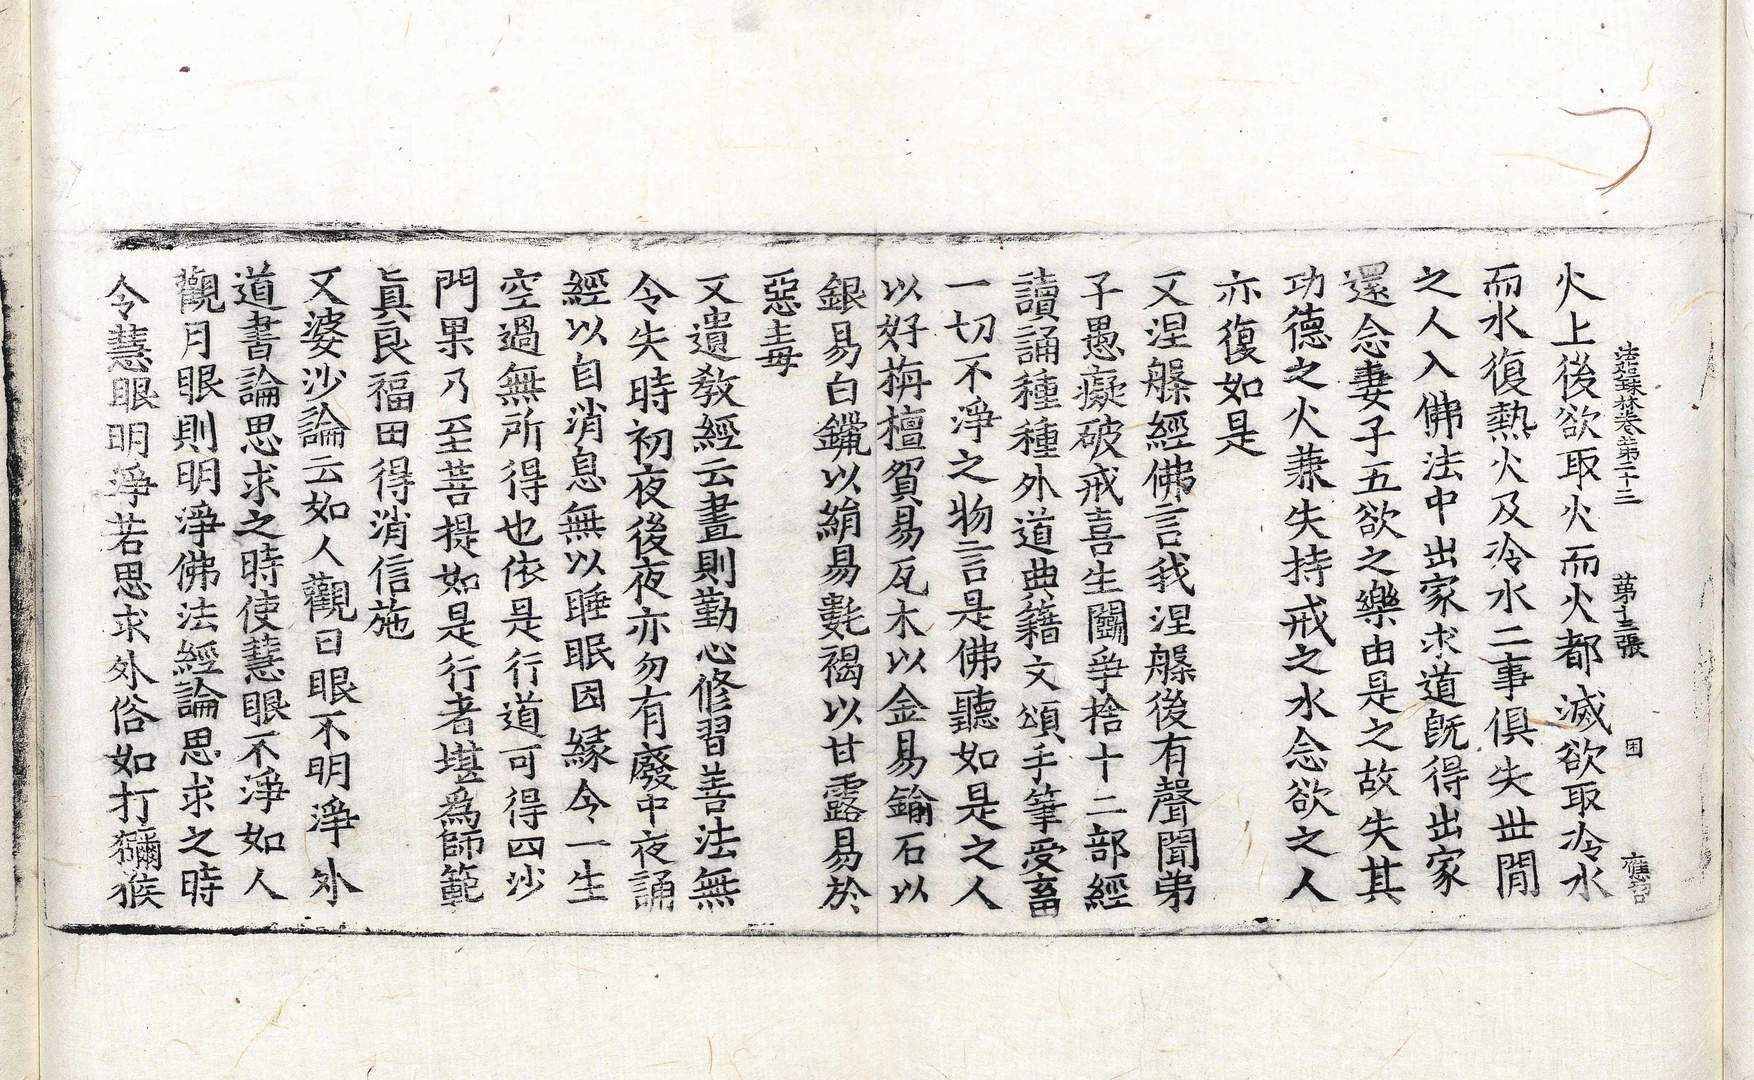 法苑珠林卷第二十三 第十三張 困 應習
火上後欲取火而火都滅欲取冷水
而水復熱火及冷水二事俱失世閒
之人入佛法中出家求道旣得出家
還念妻子五欲之樂由是之故失其
功德之火兼失持戒之水念欲之人
亦復如是
又涅槃經佛言我涅槃後有聲聞弟
子愚癡破戒喜生鬭爭捨十二部經
讀誦種種外道典籍文頌手筆受畜
一切不淨之物言是佛聽如是之人
以好栴檀貿易瓦木以金易鍮石以
銀易白鑞以絹易㲲褐以甘露易於
惡毒
又遺敎經云晝則勤心修習善法無
令失時初夜後夜亦勿有廢中夜誦
經以自消息無以睡眠因緣令一生
空過無所得也依是行道可得四沙
門果乃至菩提如是行者堪爲師範
眞良福田得消信施
又婆沙論云如人觀日眼不明淨外
道書論思求之時使慧眼不淨如人
觀月眼則明淨佛法經論思求之時
令慧眼明淨若思求外俗如打獼猴